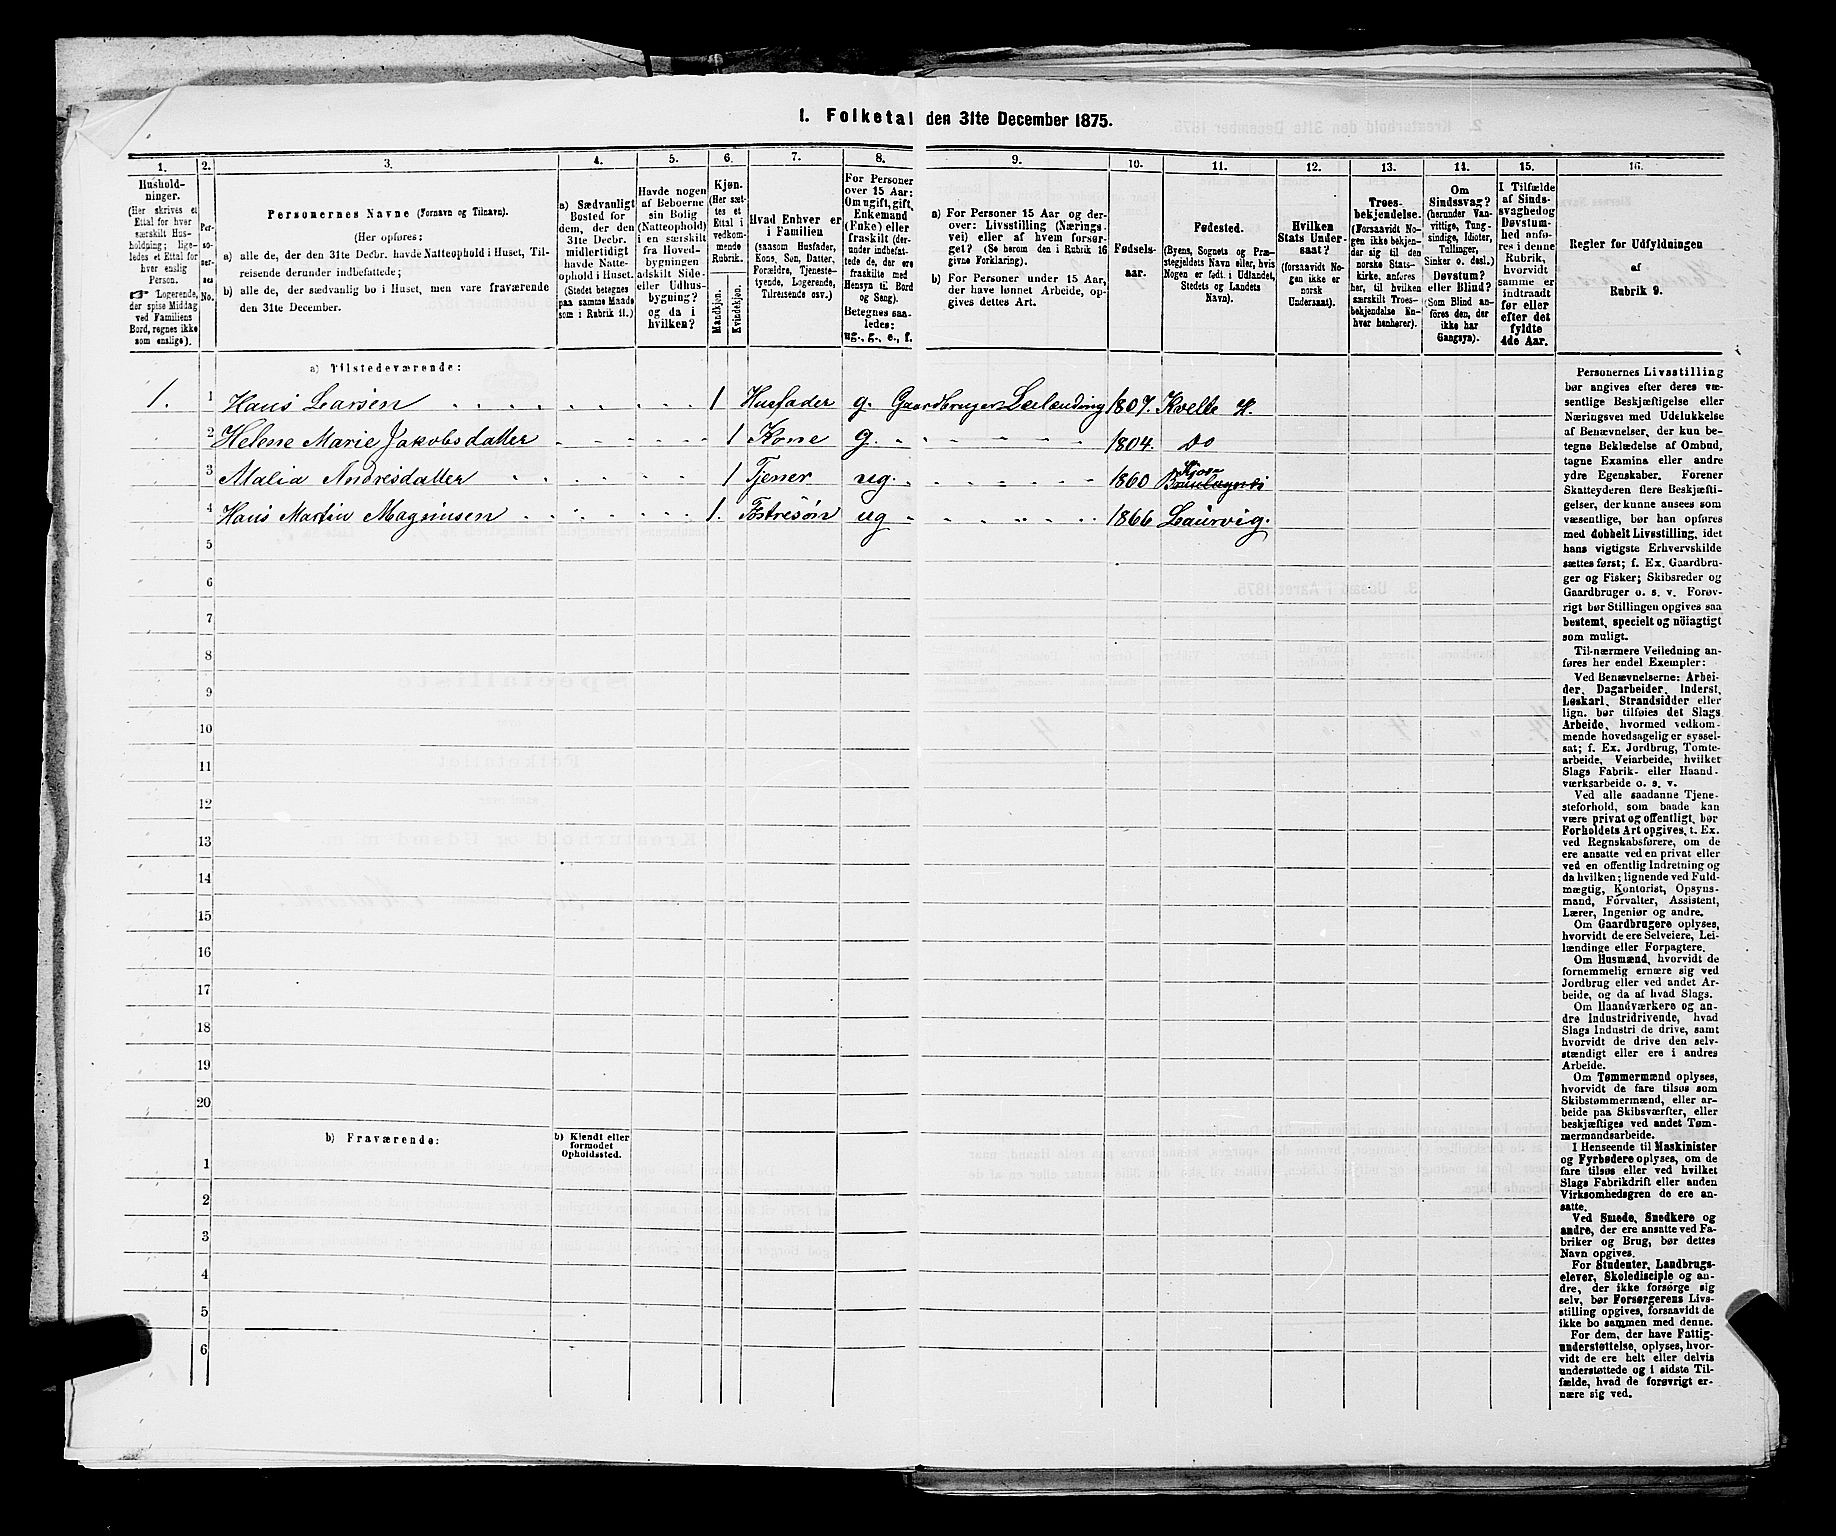 I. Folketal den 31te December 1875.
1. 2. 3. 4. 5. 6. 7. 8. 9. 10. 11. 12. 13. 14. 15. 16.
Hushold-
ninger.
(Her skrives et
Ettal for hver
særskilt Hus-
holdning; lige-
ledes et Ettal for
hver enslig
Person.
☞ Logerende,
der spise Middag
ved Familiens
Bord, regnes ikke
som enslige).
Per-
so-
ner-
nes
No.
Personernes Navne (Fornavn og Tilnavn).
(Her opføres:
a) alle de, der den 31te Decbr. havde Natteophold i Huset, Til-
reisende derunder indbefattede;
b) alle de, der sædvanlig bo i Huset, men vare fraværende
den 31te December.
a) Sædvanligt
Bosted for
dem, der den
31te Decbr.
midlertidigt
havde Natte-
ophold i Huset.
(Stedet betegnes
paa samme Maade
som i Rubrik 11.)
Havde nogen
af Beboerne
sin Bolig
(Natteophold)
i en særskilt
fra Hoved-
bygningen
adskilt Side-
eller Udhus-
bygning?
og da i
hvilken?
Kjøn.
(Her sæt-
tes et
Ettal i
vedkom-
mende
Rubrik.
Mandkjøn.
Kvindekjøn.
Hvad Enhver er
i Familien
(saasom Husfader,
Kone, Søn, Datter,
Forældre, Tjeneste-
tyende, Logerende,
Tilreisende osv.)
For Personer
over 15 Aar:
Om ugift, gift,
Enkemand
(Enke) eller
fraskilt (der-
under indbefat-
tede de, der ere
fraskilte med
Hensyn til Bord
og Seng).
Betegnes saa-
ledes:
ug., g., e., f.
a) For Personer 15 Aar og der-
over: Livsstilling (Nærings-
vei) eller af hvem forsør-
get? (Se herom den i Rubrik 16
givne Forklaring).
b) For Personer under 15 Aar,
der have lønnet Arbeide, op-
gives dettes Art.
Fødsels-
aar.
Fødested.
(Byens, Sognets og Præ-
stegjeldets Navn eller, hvis
Nogen er født i Udlandet,
Stedets og Landets
Navn).
Hvilken
Stats Under-
saat?
(forsaavidt No-
gen ikke er
norsk
Undersaat).
Troes-
bekjendelse.
(Forsaavidt No-
gen ikke bekjen-
der sig til den
norske Stats-
kirke, anføres
her, til hvilken
særskilt Troes-
bekjendelse En-
hver henhører).
Om
Sindssvag?
(herunder Van-
vittige, Tung-
sindige, Idioter,
Tullinger,
Sinker o. desl.)
Døvstum?
eller Blind?
(Som Blind an-
føres den, der
ikke har
Gangsyn).
I Tilfælde
af Sinds-
svaghed og
Døvstum-
hed anfø-
res i denne
Rubrik,
hvorvidt
samme er
indtraadt
før eller
efter det
fyldte
4de Aar.
Regler for Udfyldningen
af
Rubrik 9.
a) Tilstedeværende:
1. 1 Hans Larsen 1 Husfader g. Gaardbruger Leilænding 1807. Kvelle H.
2 Helene Marie Jakobsdatter 1 Kone g. 1804. Do
3 Malia Andresdatter 1 Tjener ug. 1860 Brunlagnæs
4 Hans Martin Magnusen 1. Fostresøn ug 1866 Laurvig.
5
6
7
8
9
10
11
12
13
14
15
16
17
18
19
20
b) Fraværende:
b) Kjendt eller
formodet
Opholdssted.
1
2
3
4
5
6
Personernes Livsstilling
bør angives efter deres væ-
sentlige Beskjæftigelse eller
Næringsvei med Udelukkelse
af Benævnelser, der kun be-
tegne Beklædelse af Ombud,
tagne Examina eller andre
ydre Egenskaber. Forener
Skatteyderen flere Beskjæfti-
gelser, der kunne ansees som
væsentlige, bør han opføres
med dobbelt Livsstilling, idet
hans vigtigste Erhvervskilde
sættes først; f. Ex. Gaardbru-
ger og Fisker; Skibsreder og
Gaardbruger o. s. v. Forøv-
rigt bør Stillingen opgives saa
bestemt, specielt og nöiagtigt
som muligt.
Til nærmere Veiledning an-
føres her endel Exempler:
Ved Benævnelserne: Arbei-
der, Dagarbeider, Inderst,
Løskarl, Strandsidder eller
lign. bør tilføies det Slags
Arbeide, hvormed vedkom-
mende hovedsagelig er syssel-
sat; f. Ex. Jordbrug, Tomte-
arbeide, Veiarbeide, hvilket
Slags Fabrik- eller Haand-
værksarbeide o. s. v.
Ved alle saadanne Tjene-
steforhold, som baade kan
være privat og offentligt, bør
Forholdets Art opgives, t. Ex.
ved Regnskabsførere, om de
ere ansatte ved en privat eller
ved en offentlig Indretning og
da hvilken; lignende ved Fuld-
mægtig, Kontorist, Opsyns-
mand, Forvalter, Assistent,
Lærer, Ingeniør og andre.
Om Gaardbrugere oplyses,
hvorvidt de ere Selveiere, Lei-
lændinge eller Forpagtere.
Om Husmænd, hvorvidt de
fornemmelig ernære sig ved
Jordbrug eller ved andet Ar-
beide, og da af hvad Slags.
Om Haandværkere og an-
dre Industridrivende, hvad
Slags Industri de drive, samt
hvorvidt de drive den selv-
stændigt eller ere i andres
Arbeide.
Om Tømmermænd oplyses,
hvorvidt de fare tilsøs som
Skibstømmermænd, eller ar-
beide paa Skibsværfter, eller
beskjæftiges ved andet Tøm-
mermandsarbeide.
I Henseende til Maskinister
og Fyrbødere oplyses, om de
fare tilsøs eller ved hvilket
Slags Fabrikdrift eller anden
Virksomhedsgren de ere an-
satte.
Ved Smede, Snedkere og
andre, der ere ansatte ved Fa-
briker og Brug, bør dettes
Navn opgives.
For Studenter, Landbrugs-
elever, Skoledisciple og an-
dre, der ikke forsørge sig
selv, bør Forsørgerens Livs-
stilling opgives, forsaavidt de
ikke bo sammen med denne.
For dem, der have Fattig-
understøttelse, oplyses, hvor-
vidt de ere helt eller delvis
understøttede og i sidste Til-
fælde, hvad de forøvrigt er-
nære sig ved.